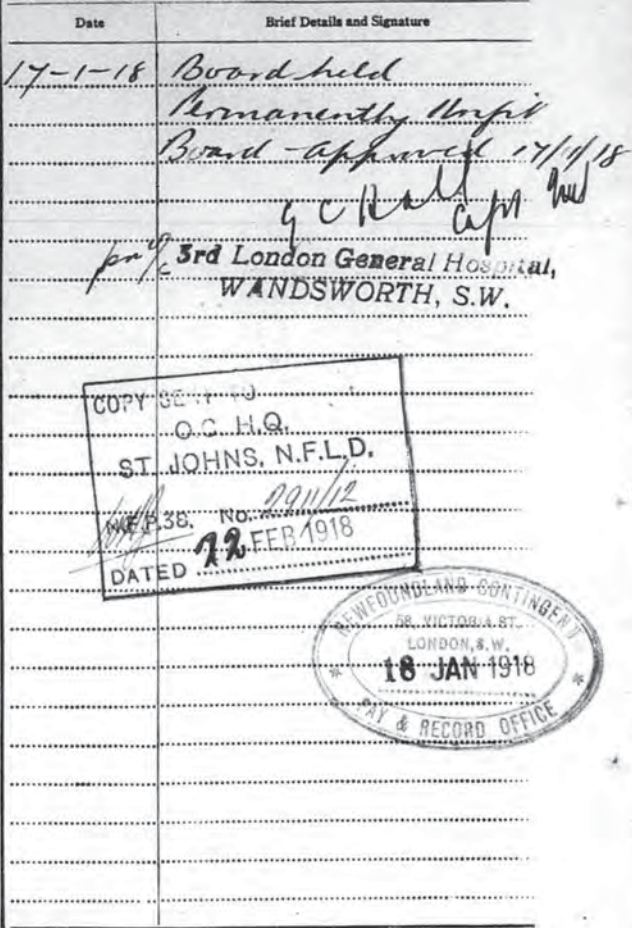 Date Brief Details and Signature
17-1-18 Board held
Permanently Unfit
Board approved 17/1/18
G C Hall Capt
for o/c 3rd London General Hospital,
WANDSWORTH, S.W.
COPY SENT TO
O.C. H.Q.
ST. JOHNS, N.F.L.D.
N.F.P.38. No. 2911/12
DATED 22 FEB 1918
NEWFOUNDLAND CONTINGENT
58, VICTORIA ST.
LONDON, S.W.
18 JAN 1918
PAY & RECORD OFFICE